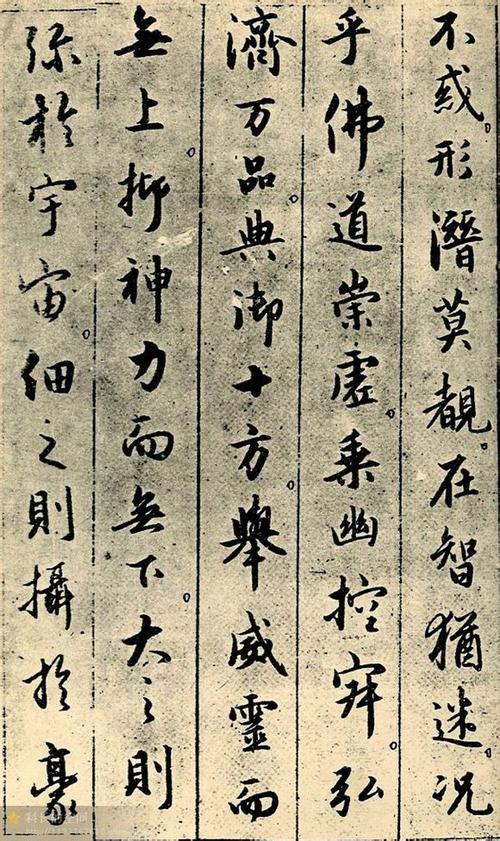 不惑形潛莫覩在智猶迷況
乎佛道崇虛乘幽控寂弘
濟万品典御十方舉威靈而
無上抑神力而無下大之則
弥於宇宙細之則攝於豪